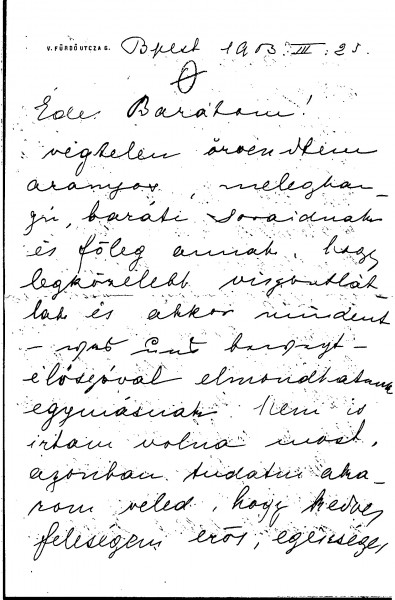 V. FÜRDŐ UTCZA 6. Bpest 1903. III. 25.
Édes Barátom!
végtelen örvendtem
aranyos, meleghan-
gú, baráti soraidnak
és főleg annak, hogy
legközelebb viszontlát-
lak és akkor mindent
- was uns bewegt -
élőszóval elmondhatunk
egymásnak. Nem is
írtam volna most,
azonban tudatni aka-
rom veled, hogy kedves
feleségem erős, egészséges